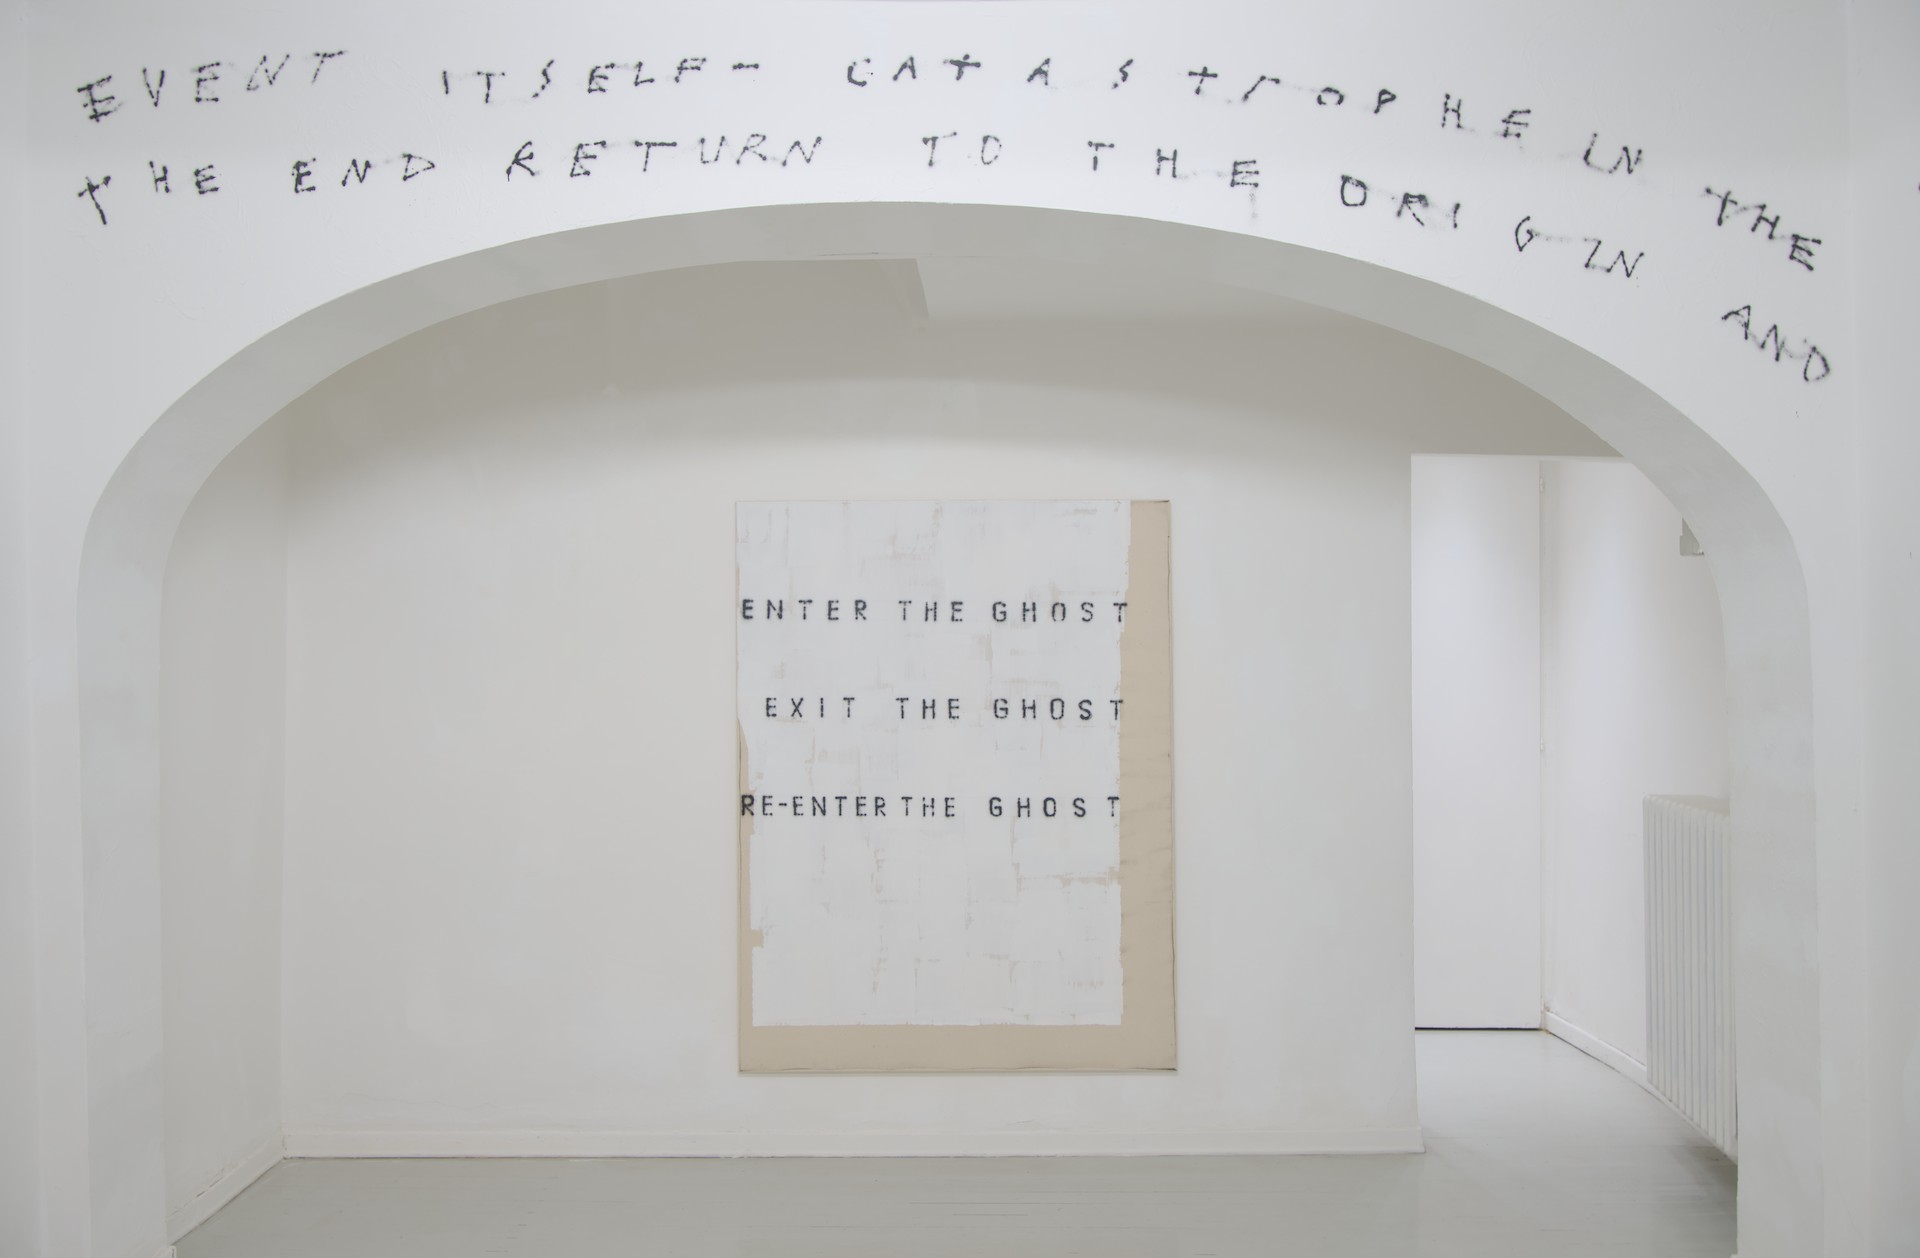 EVENT ITSELF- CATASTROPHE IN THE
THE END RETURN TO THE ORIGIN AND
ENTER THE GHOST
EXIT THE GHOST
RE-ENTER THE GHOST